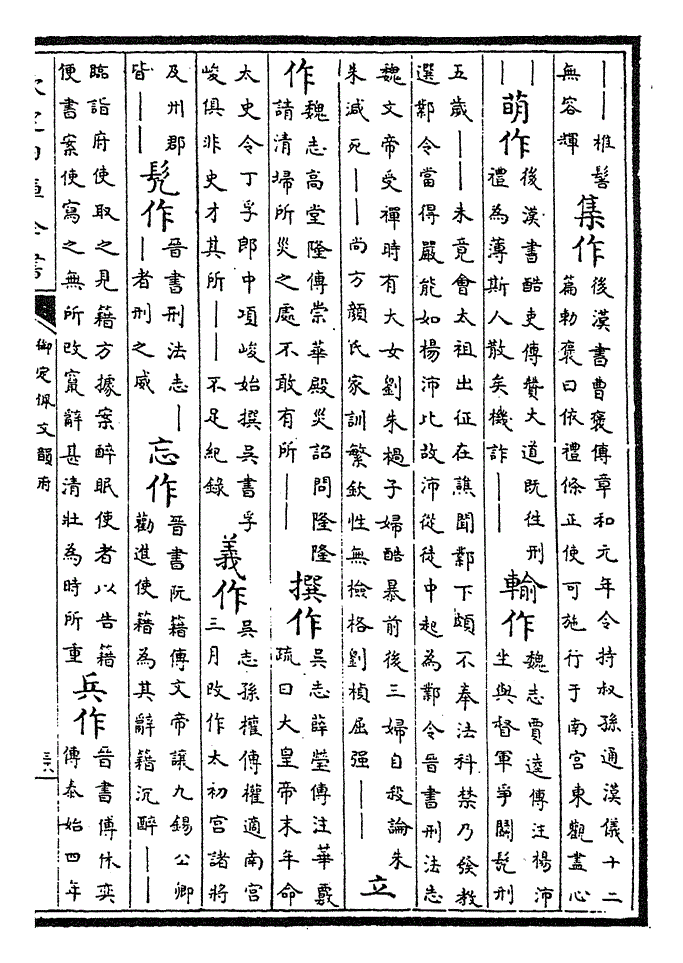 ——椎髻
無容輝
集作
後漢書曹褒傳章和元年令持叔孫通漢儀十二
篇勅褒曰依禮條正使可施行于南宮東觀盡心
—
—
萌作
後漢書酷吏傳贊大道既往刑
禮為薄斯人散矣機詐——
輸作
魏志賈逵傳注楊沛
坐與督軍爭鬭髡刑
五歲——未竟會太祖出征在譙聞鄴下頗不奉法科禁乃發教
選鄴令當得嚴能如楊沛比故沛從徒中起為鄴令晉書刑法志
魏文帝受禪時有大女劉朱檛子婦酷暴前後三婦自殺論朱
朱減死——尚方顏氏家訓繁欽性無檢格劉楨屈强——
立
作
魏志高堂隆傳崇華殿災詔問隆隆
請清埽所災之處不敢有所——
撰作
吳志薛瑩傳注華覈
疏曰大皇帝末年命
太史令丁孚郎中項峻始撰吳書孚
峻俱非史才其所——不足紀錄
義作
吳志孫權傳權適南宮
三月改作太初宮諸將
及州郡
皆——
髡作
晉書刑法志—
—者刑之威
忘作
晉書阮籍傳文帝讓九錫公卿
勸進使籍為其辭籍沉醉——
臨詣府使取之見籍方據案醉眠使者以告籍
便書案使寫之無所改竄辭甚清壯為時所重
兵作
晉書傅休奕
傳泰始四年
欽定四庫全書
御定佩文韻府
三六